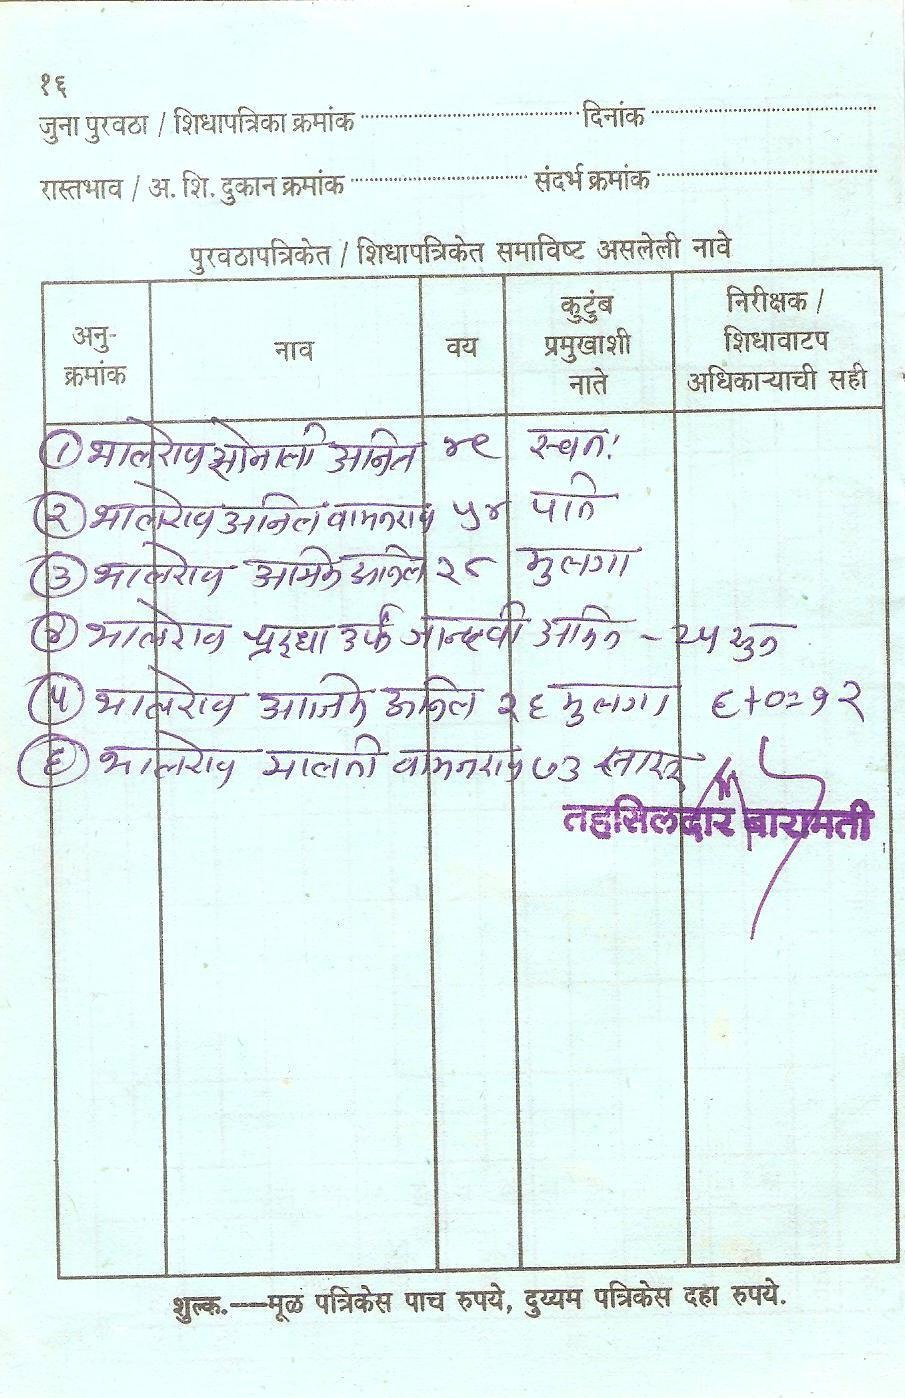 १६
जुना पुरवठा / शिधापत्रिका क्रमांक दिनांक
रास्तभाव / अ. शि. दुकान क्रमांक संदर्भ क्रमांक
पुरवठापत्रिकेत / शिधापत्रिकेत समाविष्ट असलेली नावे
अनु-
क्रमांक
नाव
वय
कुटुंब
प्रमुखाशी
नाते
निरीक्षक /
शिधावाटप
अधिकाऱ्याची सही
१ भालेराव सोनाली अनिल ४९ स्वतः
२ भालेराव अनिल वामनराव ५४ पति
३ भालेराव अनिल २८ मुलगा
४ भालेराव उर्फ जान्हवी - २५ सुन
५ भालेराव अनिल २६ मुलगा ६+०=१२
६ भालेराव मालती वामनराव ७३ सासू
तहसिलदार बारामती
शुल्क.—मूळ पत्रिकेस पाच रुपये, दुय्यम पत्रिकेस दहा रुपये.